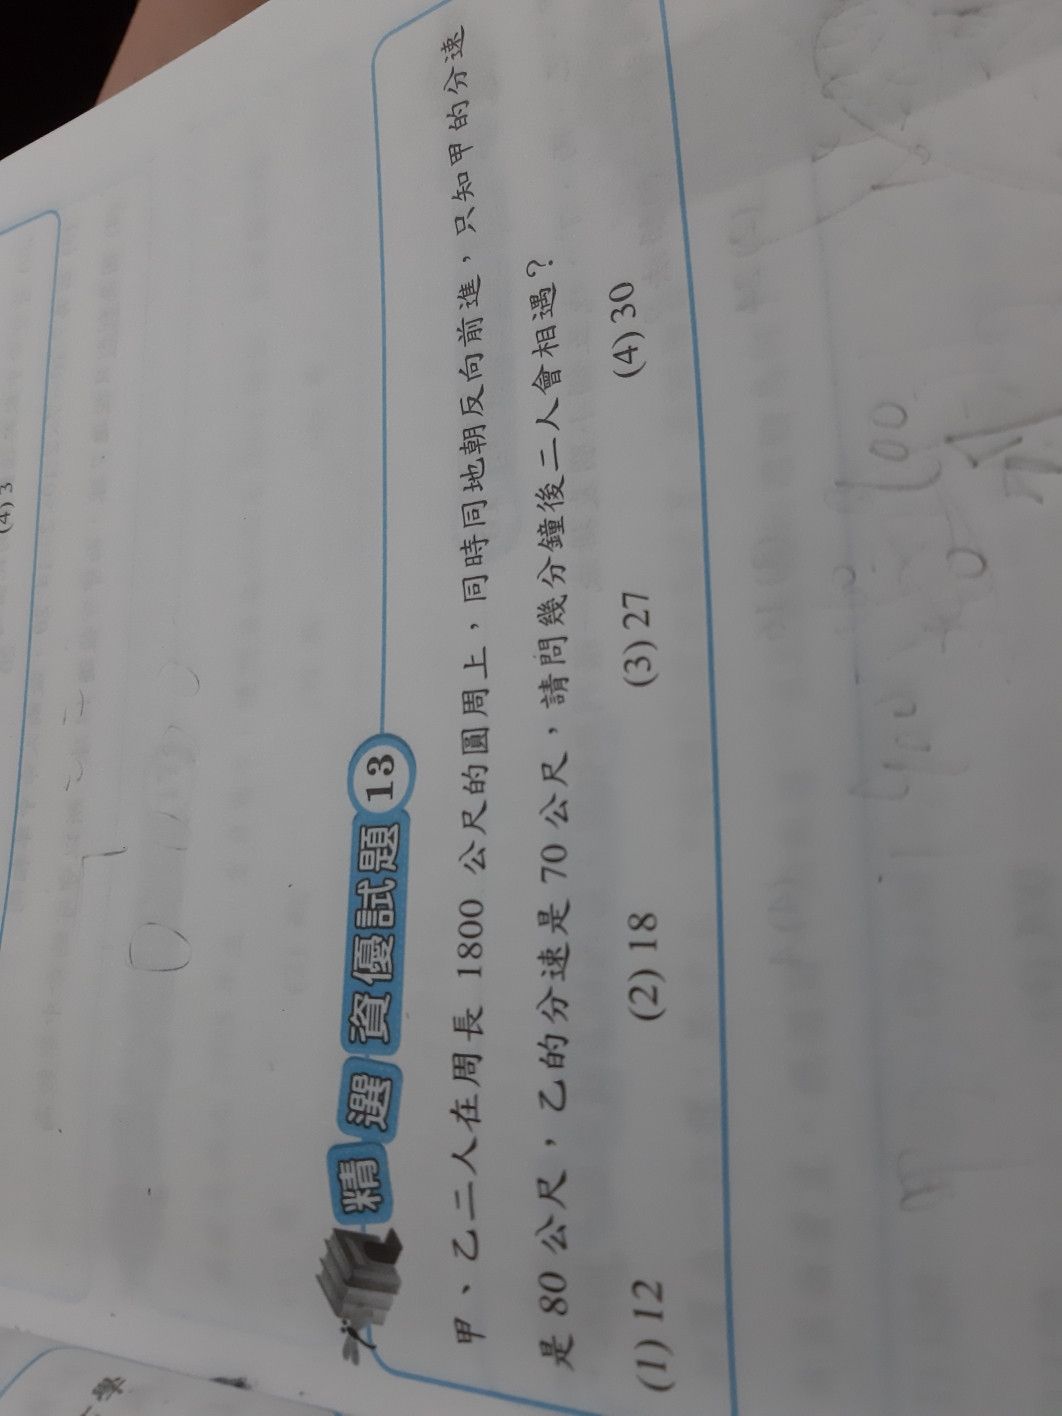 (4) 3
精選 資優試題 13
甲、乙二人在周長 1800 公尺的圓周上，同時同地朝反向前進，只知甲的分速
是 80 公尺，乙的分速是 70 公尺，請問幾分鐘後二人會相遇？
(1) 12 (2) 18 (3) 27 (4) 30